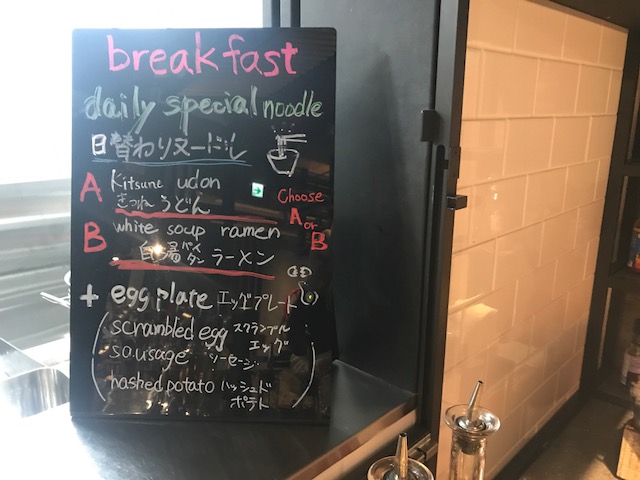 breakfast
daily special noodle
日替わりヌードル
A Kitsune udon
きつねうどん
Choose A or B
B white soup ramen
白湯パイタンラーメン
+ egg plate エッグプレート
(scrambled egg スクランブルエッグ
sausage ソーセージ
hashed potato ハッシュドポテト)